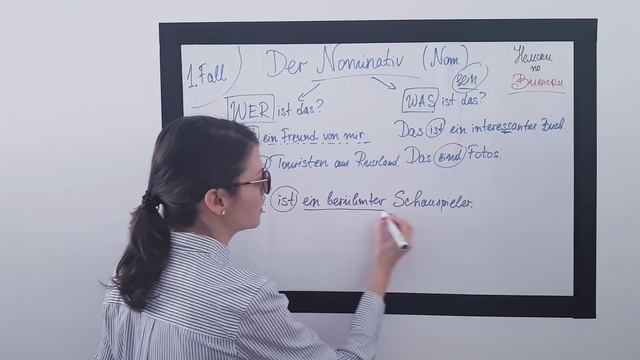 1. Fall
Der Nominativ (Nom.)
sein
Немски
по
Виенски
WER ist das?
WAS ist das?
ein Freund von mir.
Das ist ein interessanter Buch.
Touristen aus Russland.
Das sind Fotos.
ist ein berühmter Schauspieler.